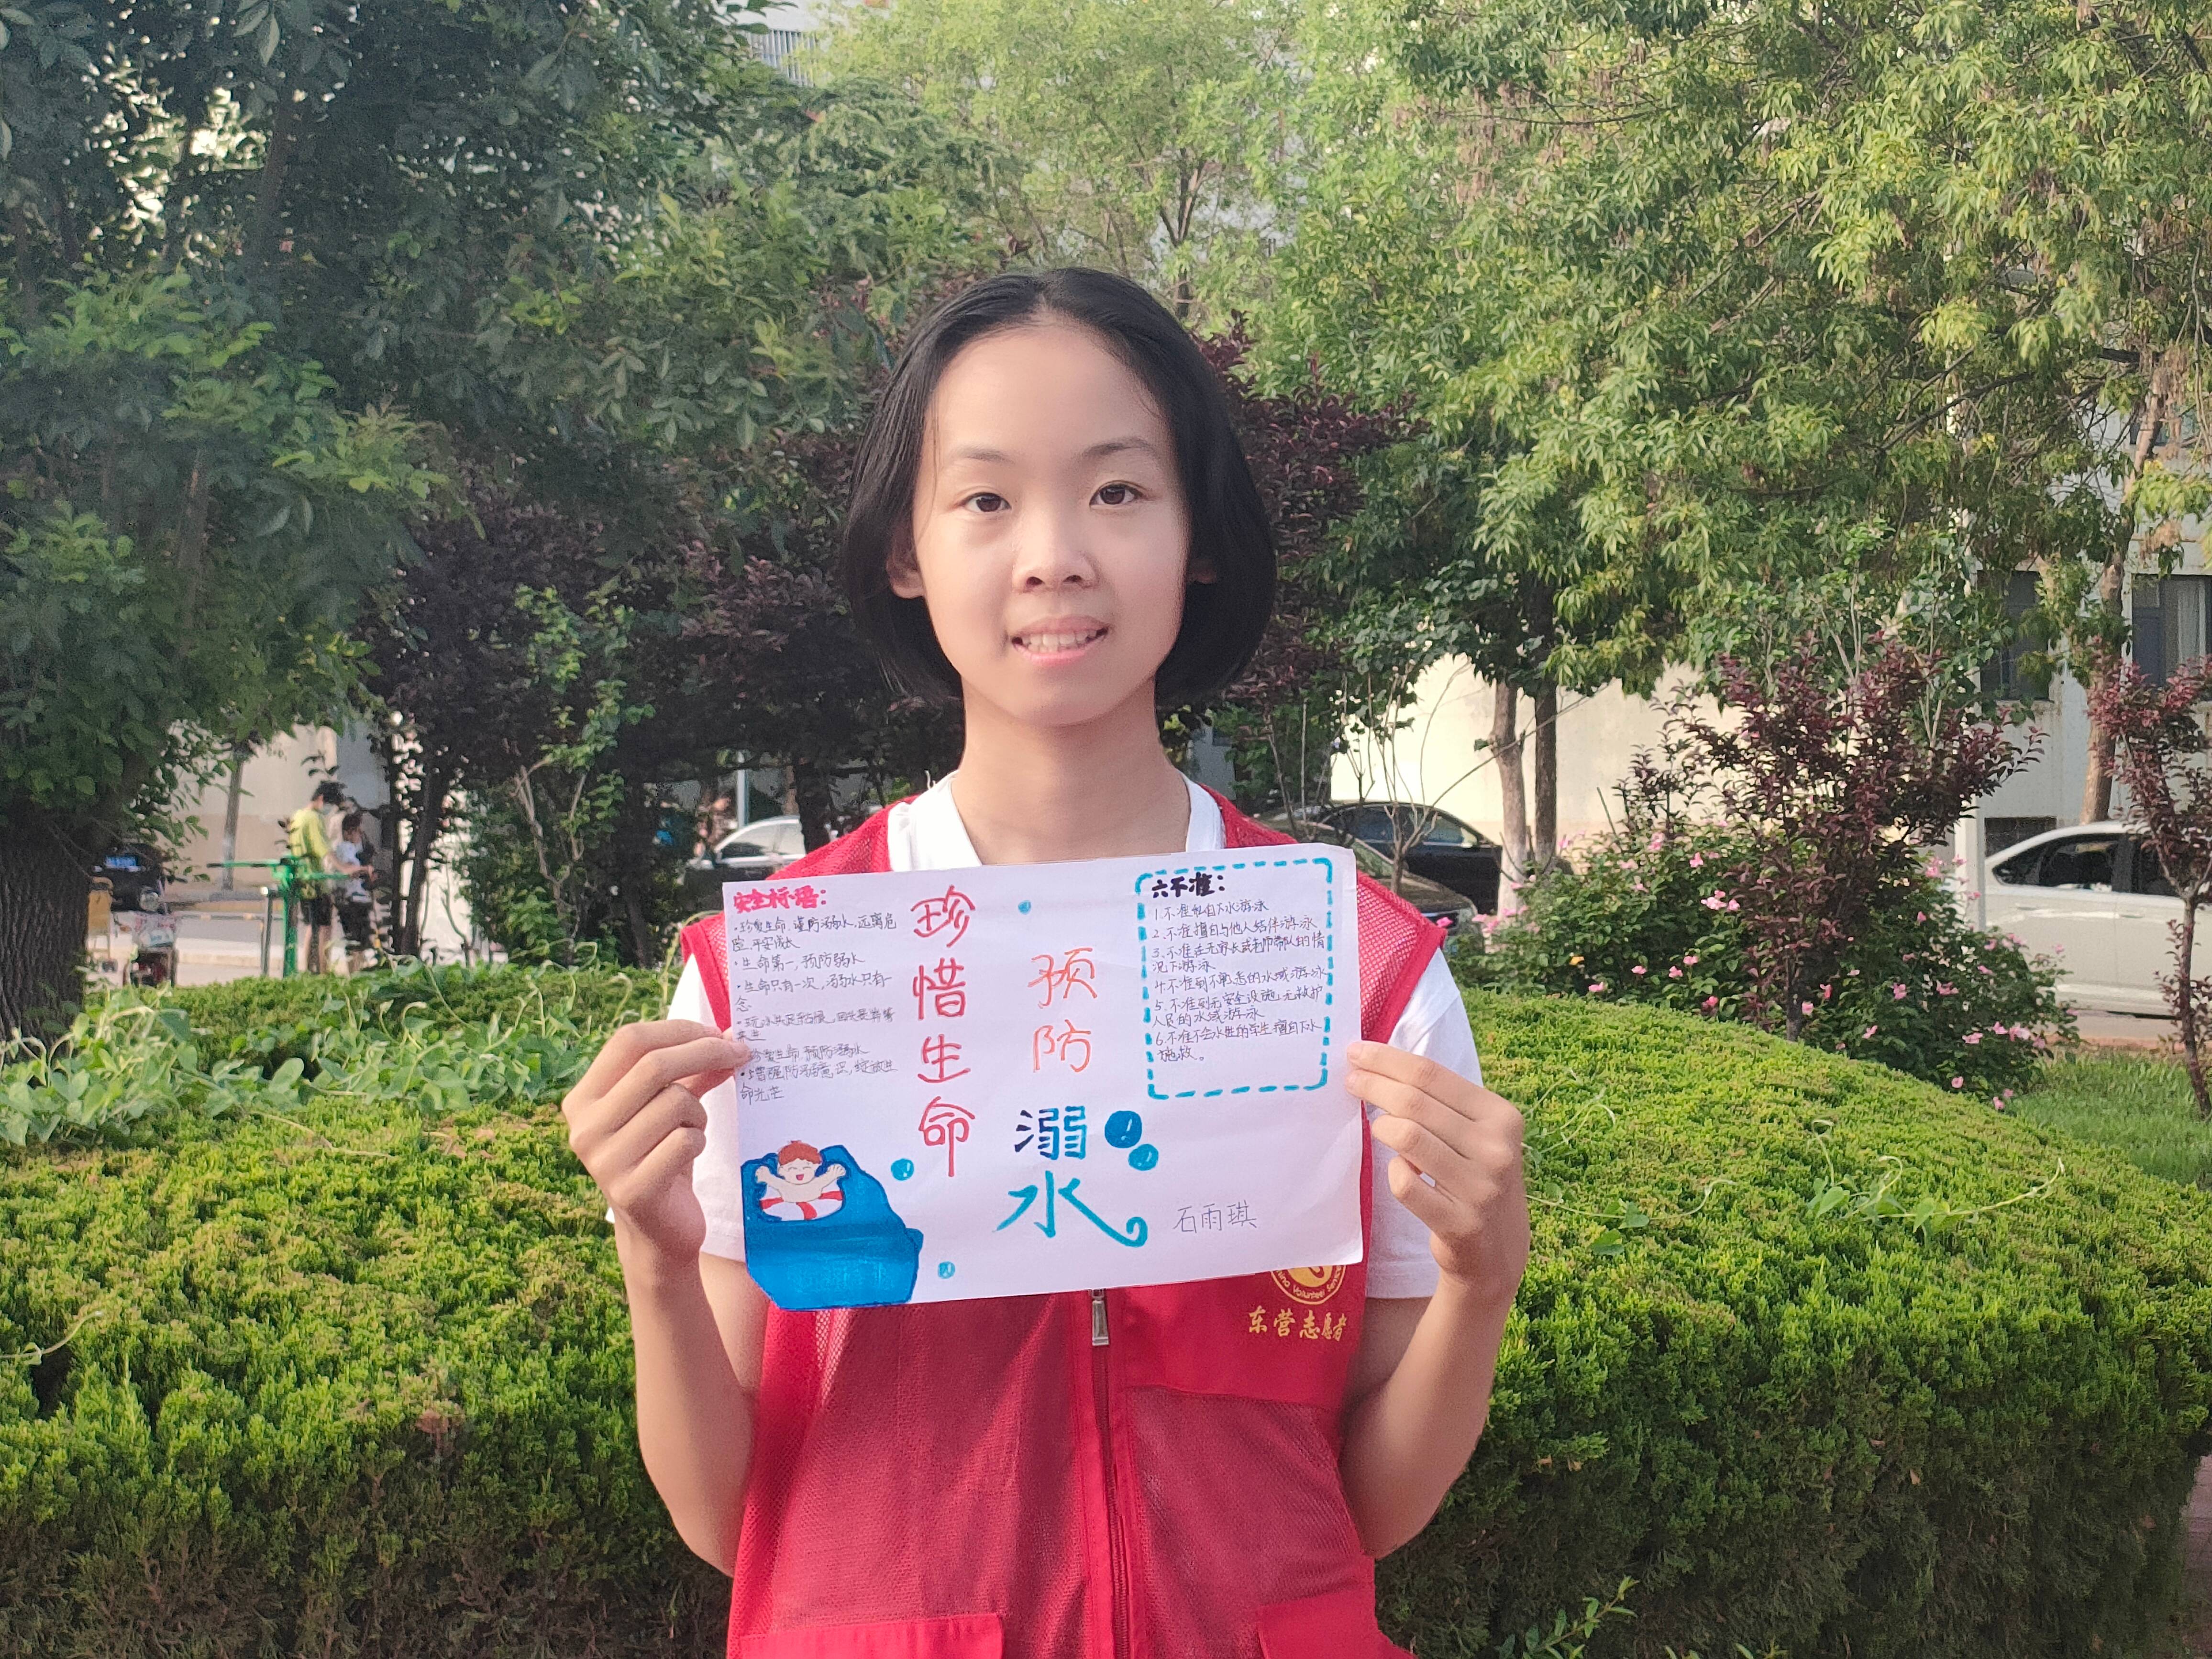 安全标语：
·珍爱生命，谨防溺水，远离危
险，平安成长
·生命第一，预防溺水
·生命只有一次，溺水只有一
念
·珍爱生命 预防溺水
·增强防溺意识，绽放生
命光芒
珍惜生命
预防
溺水
六不准：
1.不准私自下水游泳
2.不准擅自与他人结伴游泳
3.不准在无家长或老师带队的情
况下游泳
4.不准到不熟悉的水域游泳
5.不准到无安全设施、无救护
人员的水域游泳
6.不准不会水性的学生擅自下水
施救。
石雨琪
东营志愿者